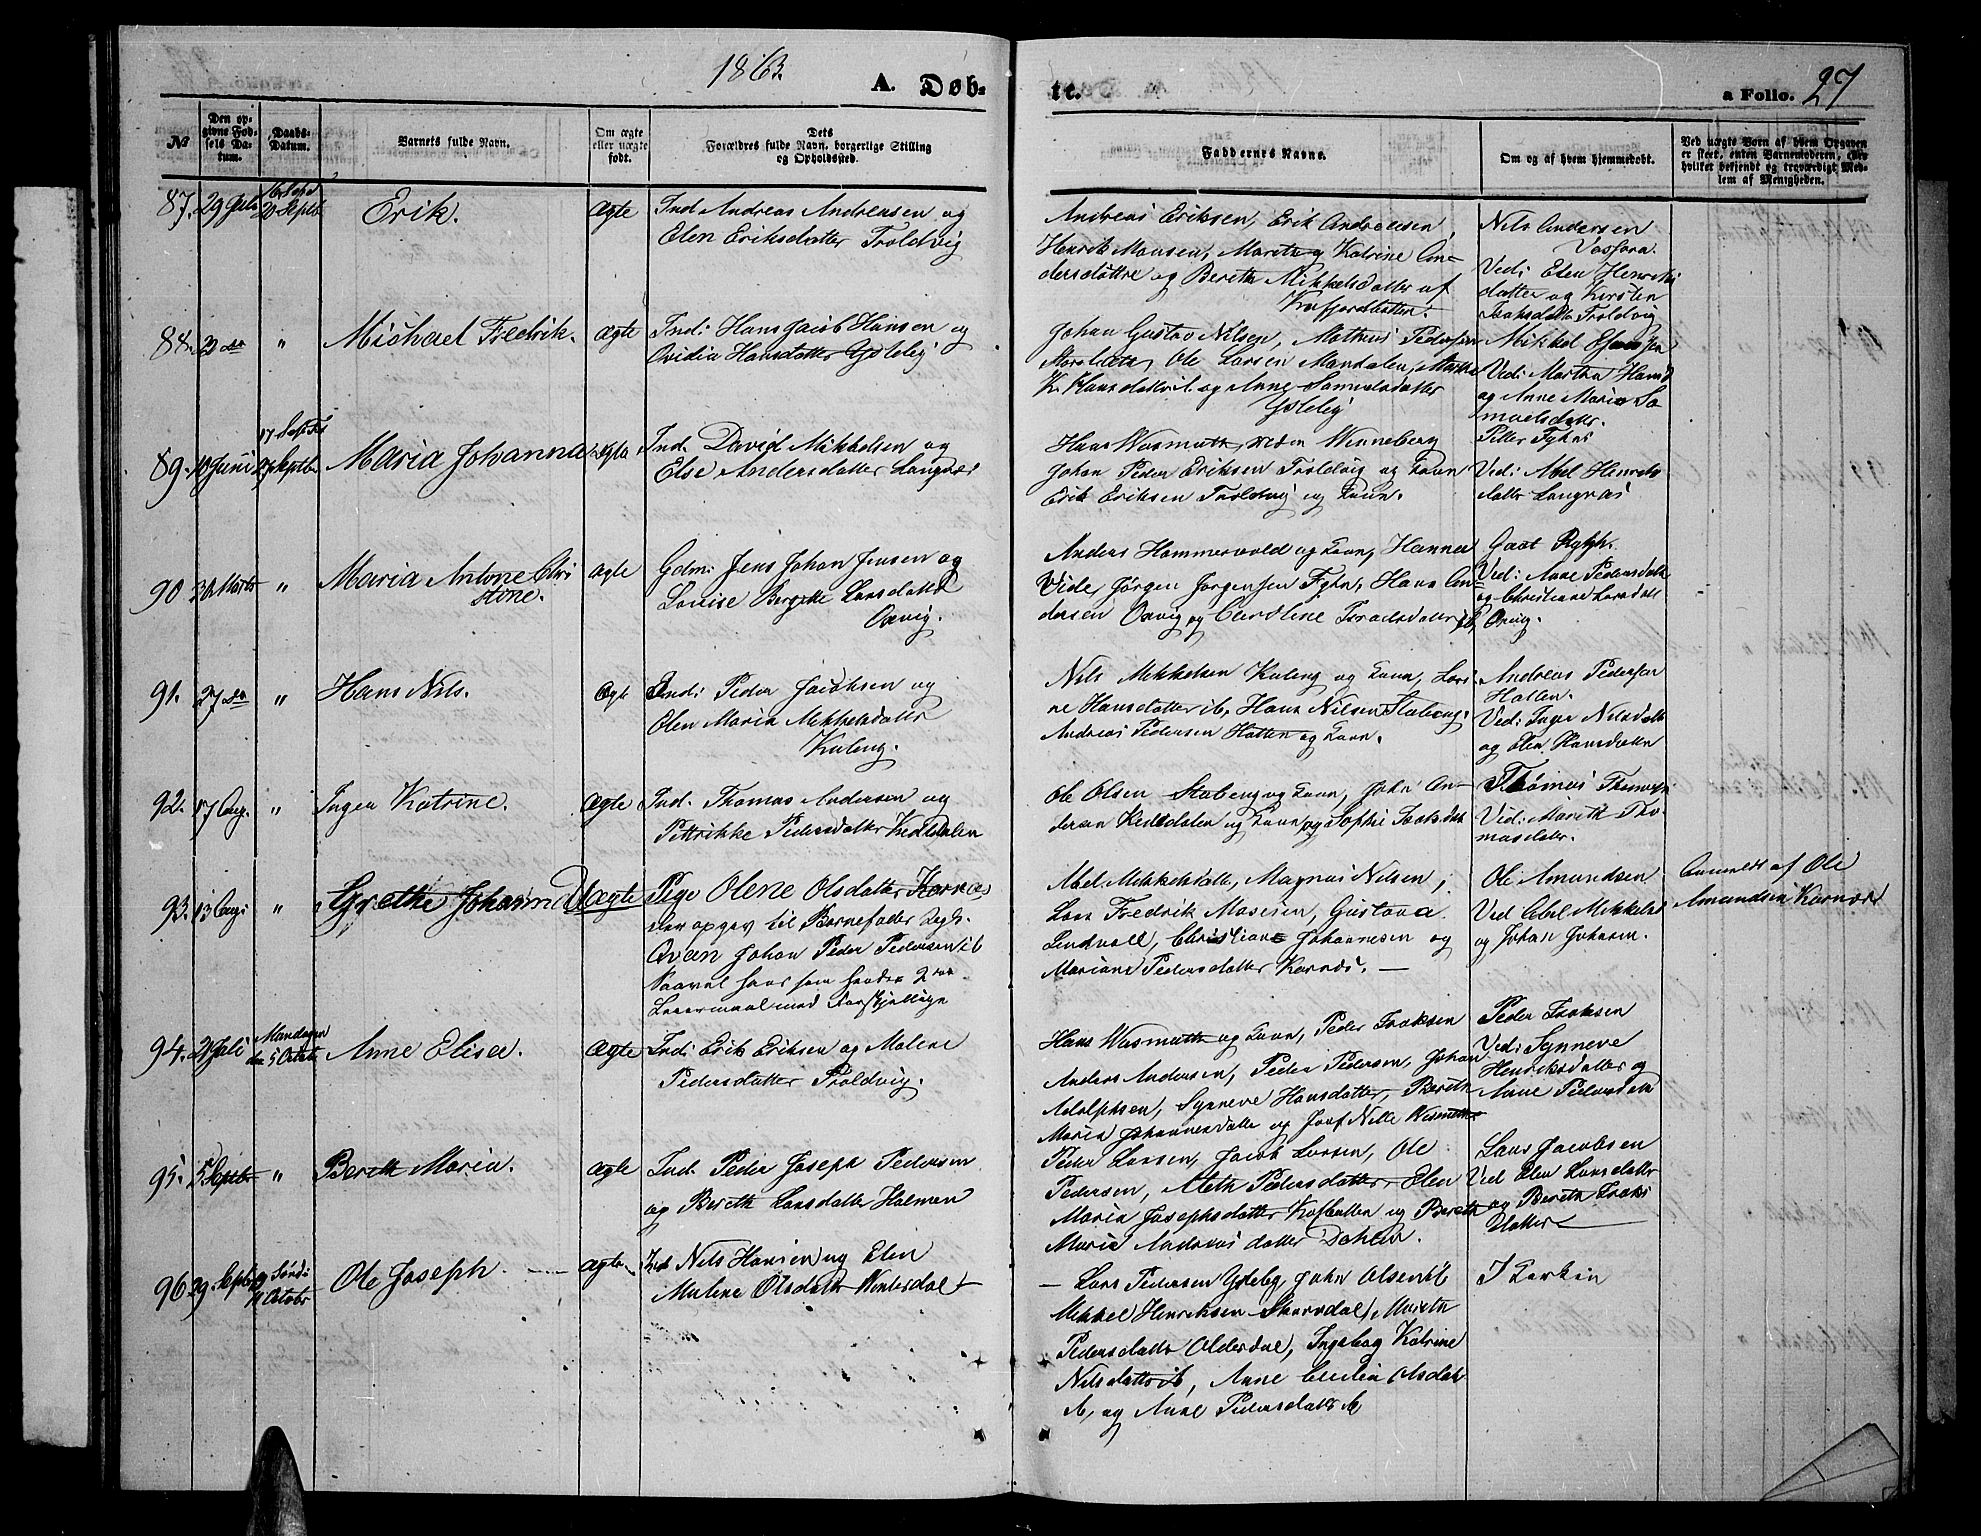 1863.
A. Døb-
te.
a Folio. 27
№
Den op-
givne Fød-
sels Da-
tum.
Daabs-
Datum.
Barnets fulde Navn.
Om ægte
eller uægte
født.
Dets
Forældres fulde Navn, borgerlige Stilling
og Opholdssted.
Faddernes Navne.
Om og af hvem hjemmedøbt.
Ved uægte Børn af hvem Opgaven
er skeet, enten Barnemoderen, eller
hvilket bekjendt og troværdigt Med-
lem af Menigheden.
87. 29 Juli
20 Septb
Erik.
Ægte
Ind. Andreas Andreasen og
Elen Eriksdatter Troldvig
Andreas Eriksen, Erik Andreasen,
Henrik Monsen, Mareth og Katrine An-
dersdøttre og Bereth Mikkelsdatter af
Kafjordbotten.
Nils Andersen
Ved: Elen Henriks
datter og Kirsten
Isaksdatter Troldvig
88. 29 do
"
Michael Fredrik.
Ægte
Ind: Hans Jacob Hansen og
Ovidia Hansdatter Ysteleij
Johan Gustav Nilsen, Mathis Pedersen
Storslet, Ole Larsen Mandalen, Martha
K. Hansdatter ib. og Anne Samuelsdatter
Ysteleij
Mikkel
Ved: Martha Hansd
og Anne Maria Sa-
muelsdatter.
89. 10 Juni
27 Septb.
Maria Johanna
Ægte
Ind. David Mikkelsen og
Else Andersdatter Langnæs
Hans Wasmuth, Winneberg
Johan Peder Eriksen Troldvig og Kone
Erik Eriksen Troldvig og Kone.
Petter Fyhn
Ved: Abel Henriks
datter Langnæs
90 30 Marts
"
Maria Antone Chri
stine.
Ægte
Gdm: Jens Johan Jensen og
Louise Bergitte Larsdatter
Oxvig.
Anders Hammervold og Kone, Hanna
Vide, Jørgen Jørgensen Fyhn, Hans An-
dersen Oxvig og Caroline Israelsdatter ib.
Gaat Rypp.
Ved: Anne Pedersdatter
og Christiane Larsdatt
Oxvig.
91. 27 do
"
Hans Nils.
Ægte
Ind: Peder Jacobsen og
Elen Maria Mikkelsdatter
Kuleng.
Nils Mikkelsen Kuleng og Kone, Lovi-
ne Hansdatter ib, Hans Nilsen Stabeng,
Andreas Pedersen Hatten og Kone.
Andreas Pedersen
Hatten.
Ved: Inger Nilsdatt
og Elen Hansdatter
92. 17 Aug.
"
Inger Katrine.
Ægte
Ind. Thomas Andersen og
Pettrikke Pedersdatter Kveddalen
Ole Olsen Stabeng og Kone, John An-
dersen Kveddalen og Kone og Sophi Isaksdat
Thomas Thomassen
Ved: Mareth Tho-
masdatter.
93. 13 Aug:
"
Grethe Johanna
Uægte
Pige Olene Olsdatter Kornæs
der opgav til Barnefader
Qvæn Johan Peder Pedersen ib
Saavel hans som hendes 2det
Leiermaal med forskjellige
Abel Mikkelsdatter, Magnus Nilsen,
Lars Fredrik Mosesen, Gustava
Lindvall, Christiane Johannesen og
Mariane Pedersdatter Kornæs. —
Ole Amundsen
Ved Abel Mikkelsd
og Johan Johansn.
Anmeldt af Ole
Amundsen Kornæs
94. 21 Juli
Mandagen
den 5 Octob
Anne Elisa.
Ægte
Ind: Erik Eriksen og Malene
Pedersdatter Troldvig.
Hans Wasmuth og Kone, Peder Isaksen
Anders Andersen, Peder Pedersen, Johan
Adolphsen, Synneve Hansdatter, Bereth
Maria Johannesdatter og Jomf Nille Wasmuth
Peder Isaksen
Ved: Synneve
Henriksdatter og
Anne Pedersdatt
95. 5 Septb
"
Bereth Maria.
Ægte
Ind. Peder Joseph Pedersen
og Bereth Larsdatter Holmen
Peder Larsen, Jacob Larsen, Ole
Pedersen, Meth Pedersdatter, Elen
Maria Josephsdatter Kafbotten og Bereth
Maria Andreas datter Dahlen.
Lars Jacobsen
Ved Elen Larsdatter
og Bereth Isaks
datter
96 29. Septb
11 Octobr
Ole Joseph.
Ægte
Ind Nils Hansen og Elen
Malene Olsdatter Wintersdal
— Lars Pedersen Ysteleij, John Olsen ib
Mikkel Henriksen Skarvdal, Mareth
Pedersdatter Olderdal, Ingebog Katrine
Nilsdatter ib, Anne Cecilia Olsdat
ib, og Anne Pedersdatter ib
I Kirken